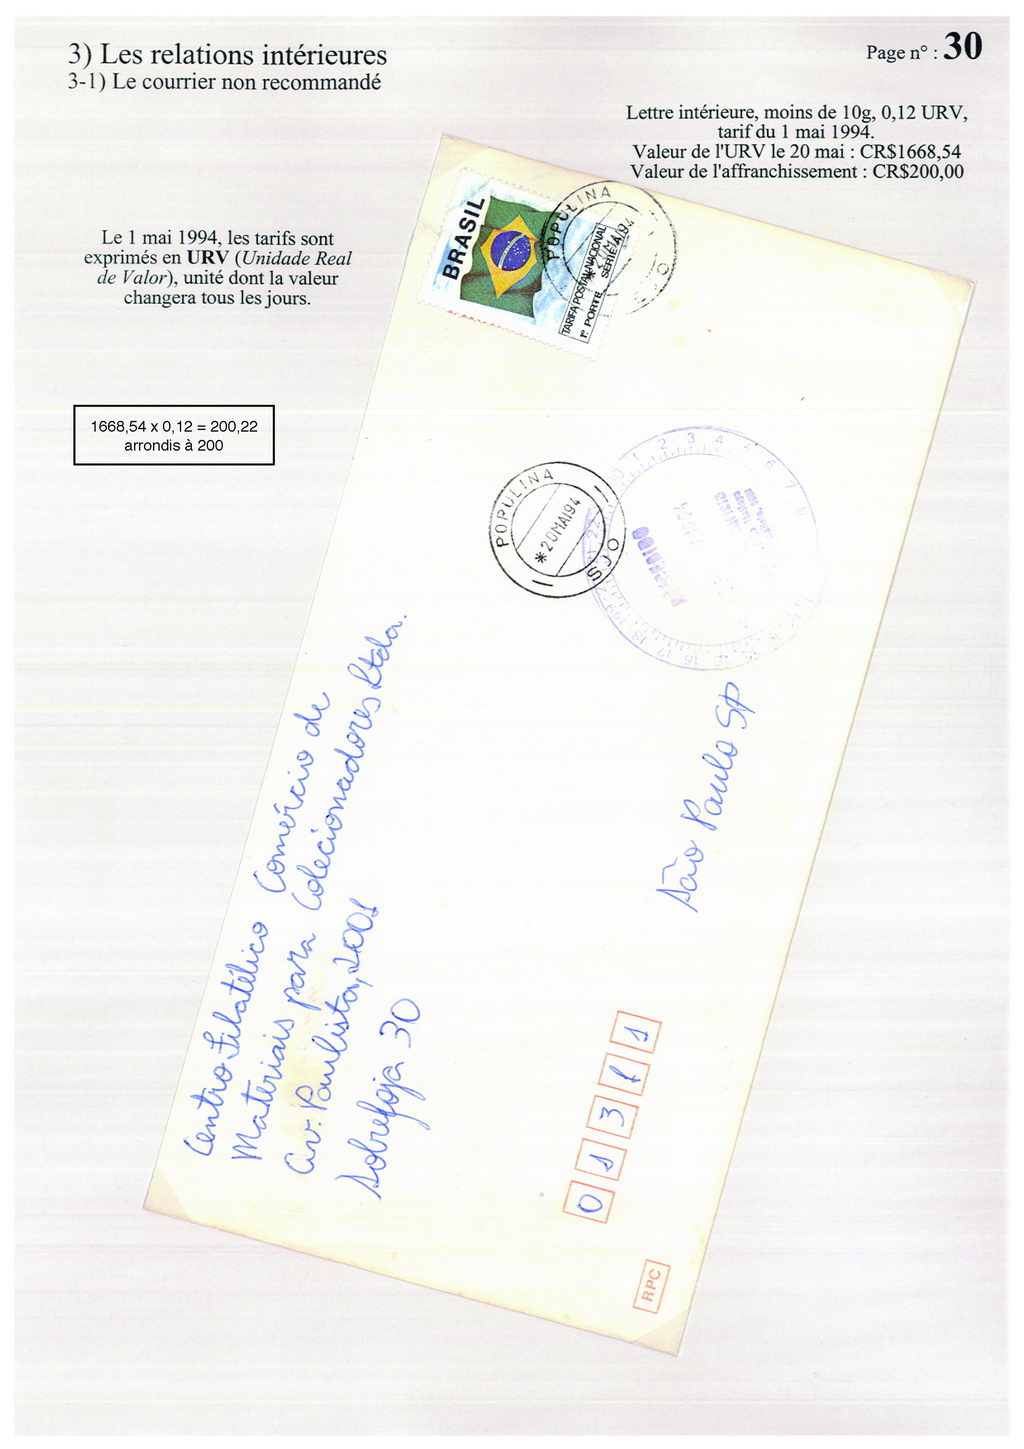 3) Les relations intérieures
3-1) Le courrier non recommandé
Page n° : 30
Lettre intérieure, moins de 10g, 0,12 URV,
tarif du 1 mai 1994.
Valeur de l'URV le 20 mai : CR$1668,54
Valeur de l'affranchissement : CR$200,00
Le 1 mai 1994, les tarifs sont
exprimés en URV (Unidade Real
de Valor), unité dont la valeur
changera tous les jours.
1668,54 x 0,12 = 200,22
arrondis à 200
BRASIL
TARIFA POSTAL NACIONAL
1º PORTE SÉRIE A
POPULINA
SJO
POPULINA
*20MAI94
SJO
Centro Filatélico Comércio de
Materiais para Colecionadores Ltda.
Av. Paulista, 2001
Sobreloja 30
São Paulo SP
01311
RPC